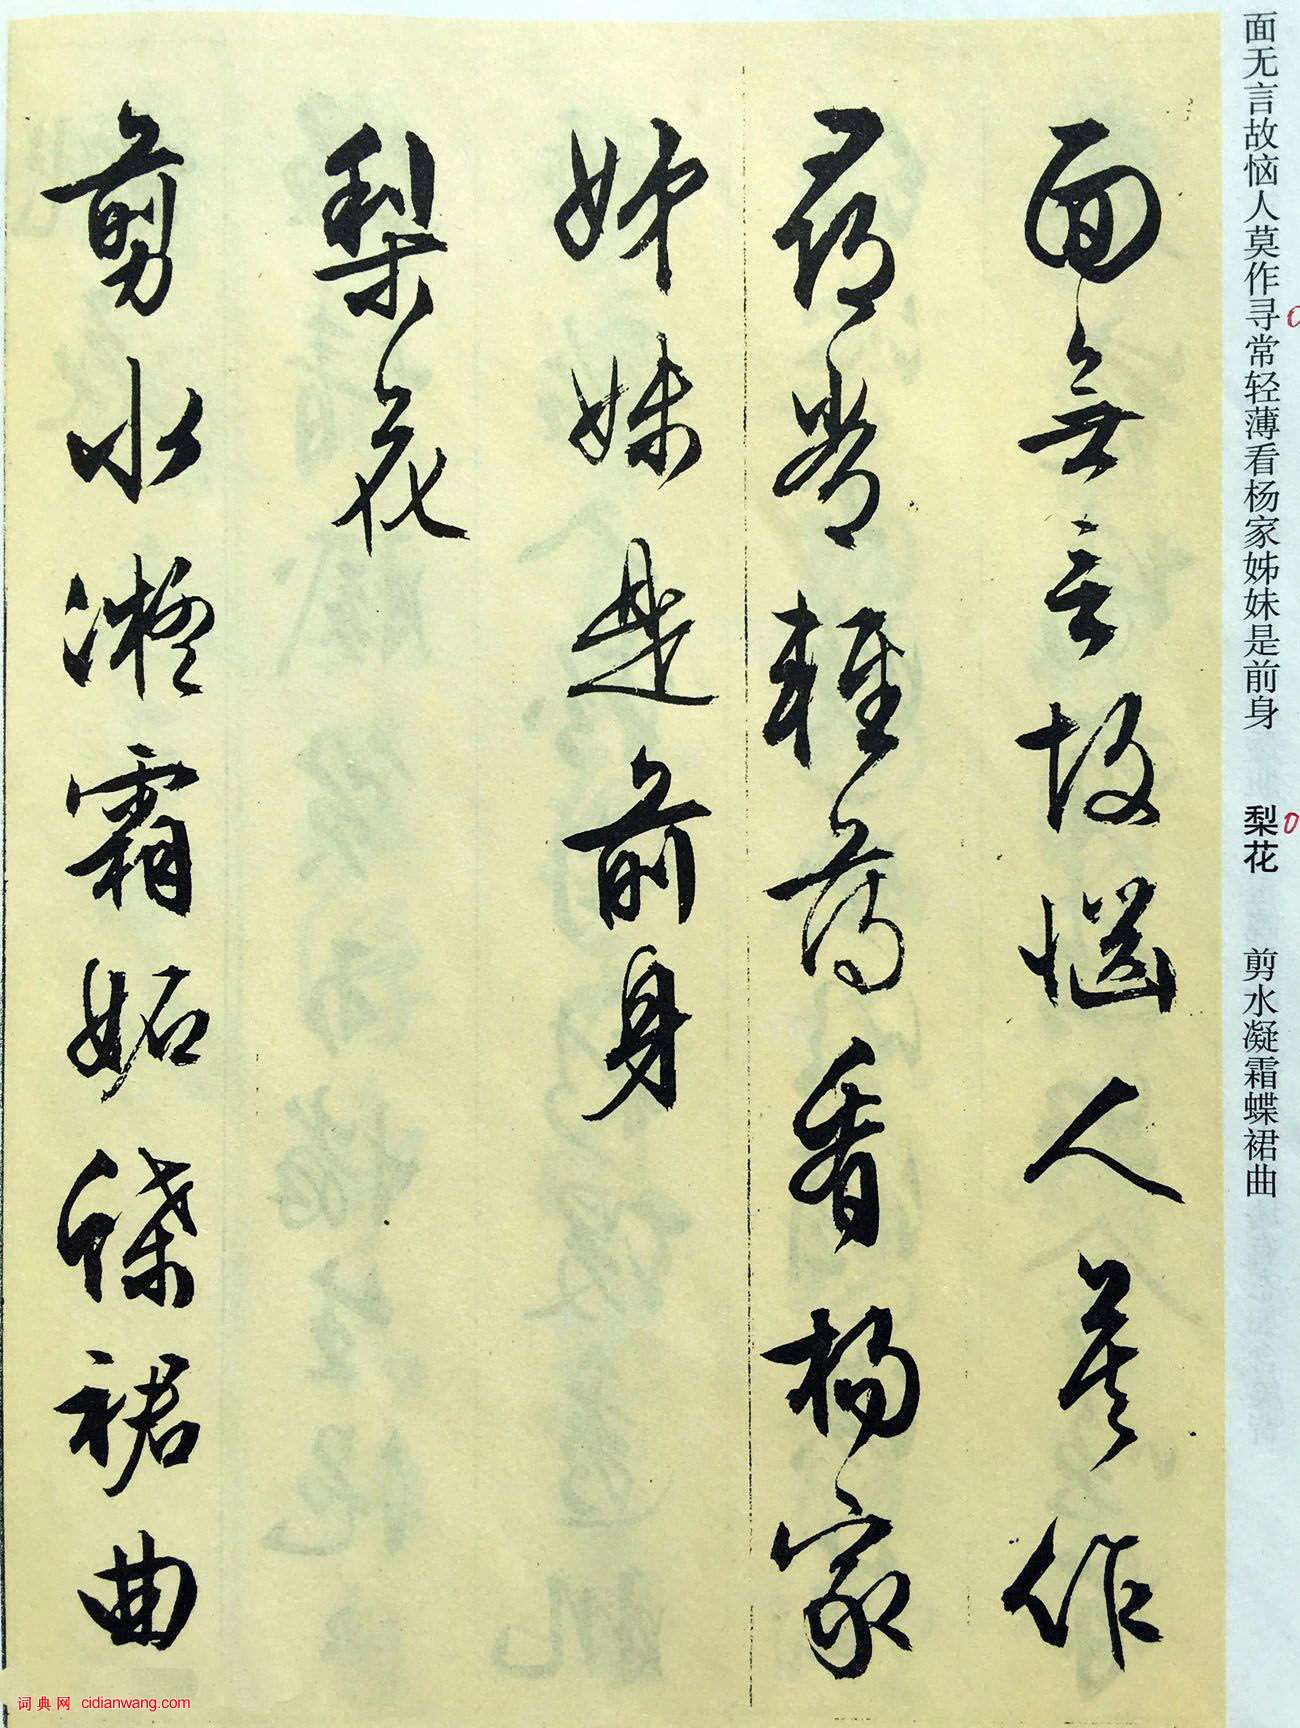 面無言故惱人莫作
尋常輕薄看楊家
姊妹是前身
梨花
剪水凝霜妬蝶裙曲
面无言故恼人莫作寻常轻薄看杨家姊妹是前身 梨花 剪水凝霜蝶裙曲
词典网 cidianwang.com